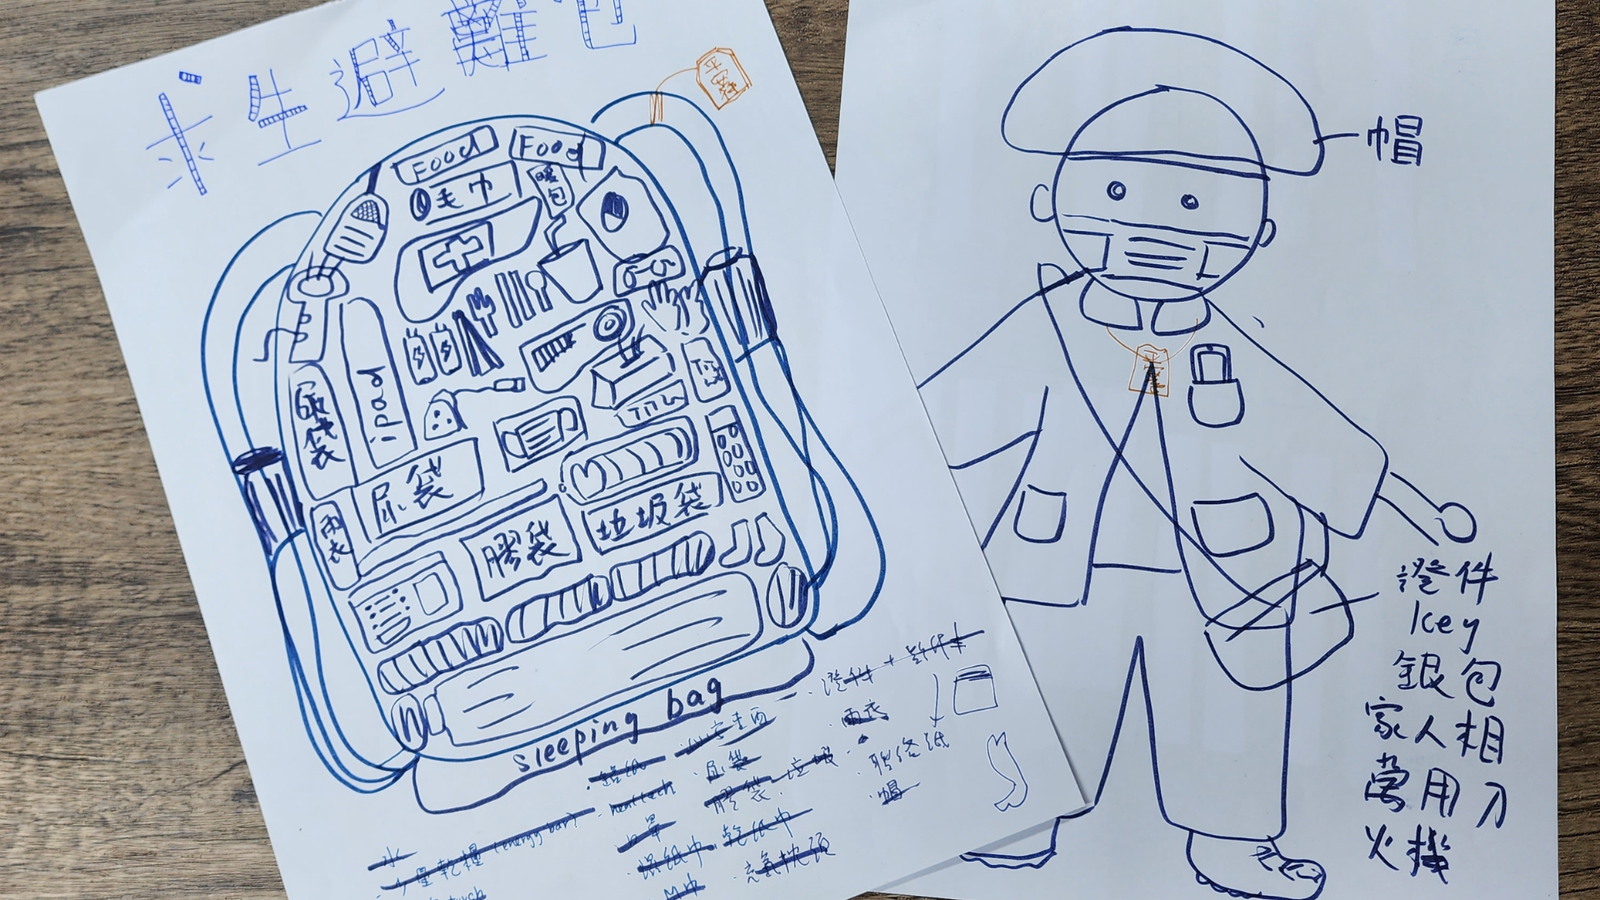 求生避難包
平安
Food
Food
毛巾
暖包
ipad
尿袋
尿袋
雨衣
膠袋
垃圾袋
sleeping bag
證件
雨衣
尿袋
膠袋
垃圾
聯絡紙
帽
水
乾糧 (energy bar)
濕紙巾
乾紙巾
充氣枕頭
M巾
帽
證件
key
銀包
家人相
萬用刀
火機